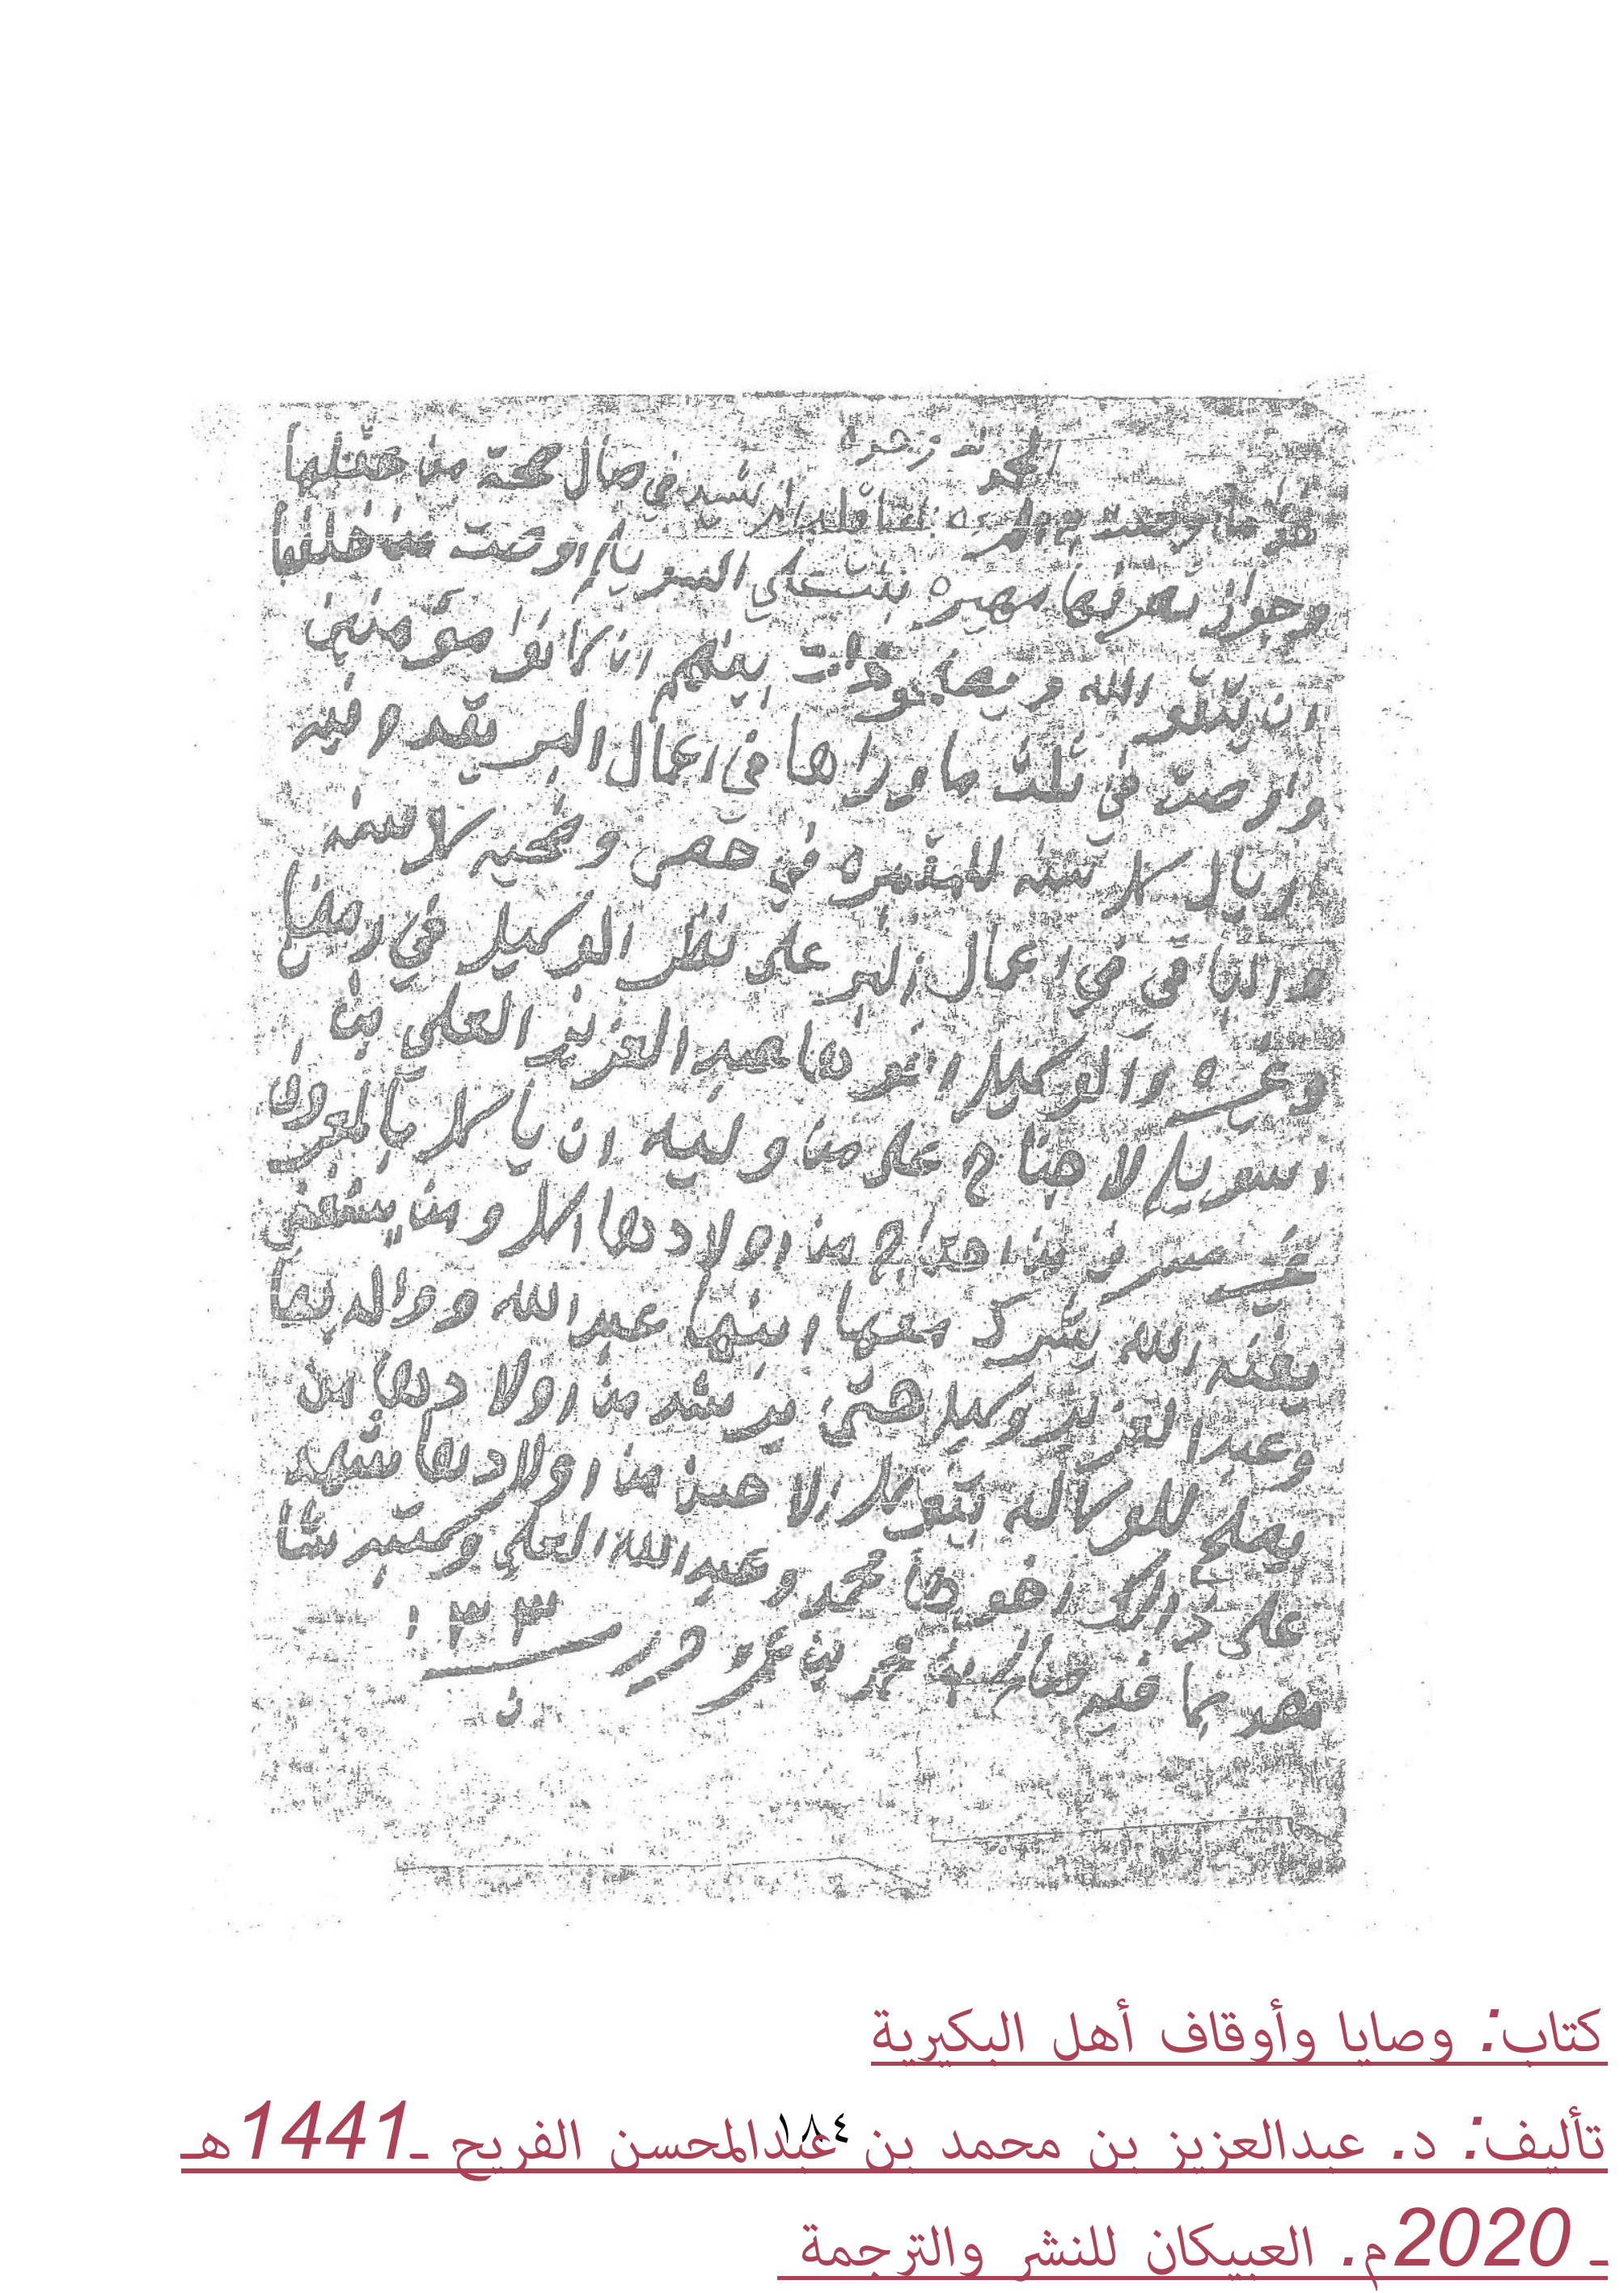 الحمد لله وحده
هذا ما وصت به المره العاقله الرشيد في حال صحة من عقلها
وجواز تصرفها مهيره بنت علي السويلم اوصت من خلفها
ان يتقو الله ويصلحو ذات بينهم ان كانوا مؤمنين
واوصت في ثلث ما وراها في اعمال البر يقدم فيه
اريال كل سنه للمقبره في حقص وضحيه كل سنه
والباقي في اعمال البر على نظر الوكيل في رمضان
وغيره والوكيل اخوها عبد العزيز العلي بن
اسويلم لا جناح على من وليه ان ياكل بالمعروف
من احتاج من اولادها اكل ومن يستغني
يغنه الله يشرك معها ابنها عبد الله ووالديها
وعبد العزيز وكيل حتى يرشد من اولادها من
يصلح للوكاله يتوكل الاحسن من اولادها شهد
على ذالك اخويها محمد وعبد الله العلي وكتبه شا
هد بما فيه صالح بن محمد بن
١٣٣
كتاب: وصايا وأوقاف أهل البكيرية
تأليف: د. عبدالعزيز بن محمد بن عبدالمحسن الفريح ـ1441هـ
١٨٤
ـ 2020م. العبيكان للنشر والترجمة